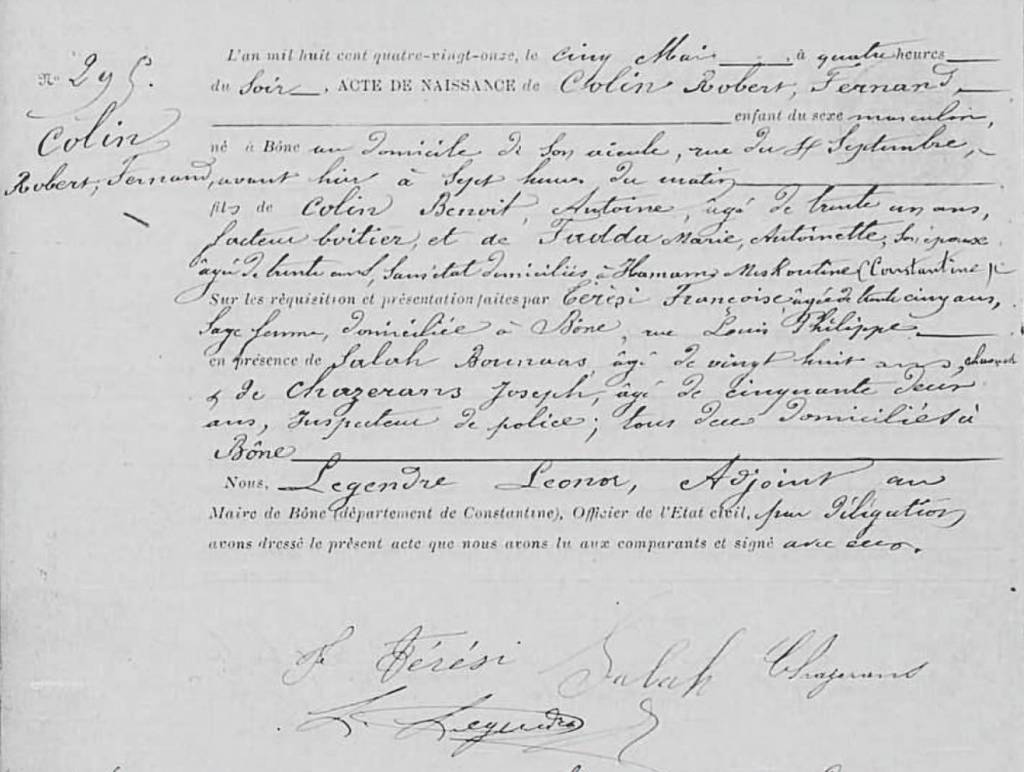 N° 295.
Colin
Robert, Fernand
L'an mil huit cent quatre-vingt-onze, le cinq Mai, à quatre heures
du Soir, ACTE DE NAISSANCE de Colin Robert, Fernand,
enfant du sexe masculin,
né à Bône au domicile de son aïeule, rue du 4 Septembre,
avant hier à sept heures du matin
fils de Colin Benoit, Antoine, âgé de trente un ans,
facteur boitier, et de Fadda Marie, Antoinette, son épouse
âgée de trente ans, sans état domiciliés à Hamam Meskoutine (Constantine)
Sur les réquisition et présentation faites par Térèsi Françoise âgée de trente cinq ans,
Sage femme, domiciliée à Bône, rue Louis Philippe
en présence de Salah Bounaas, âgé de vingt huit ans, chaouch
& de Chazerans Joseph, âgé de cinquante deux
ans, Inspecteur de police; tous deux domiciliés à
Bône
Nous, Legendre Leonor, Adjoint au
Maire de Bône (département de Constantine), Officier de l'Etat civil, par délégation
avons dressé le présent acte que nous avons lu aux comparants et signé avec eux.
F Térési Salah Chazerans
L. Legendre